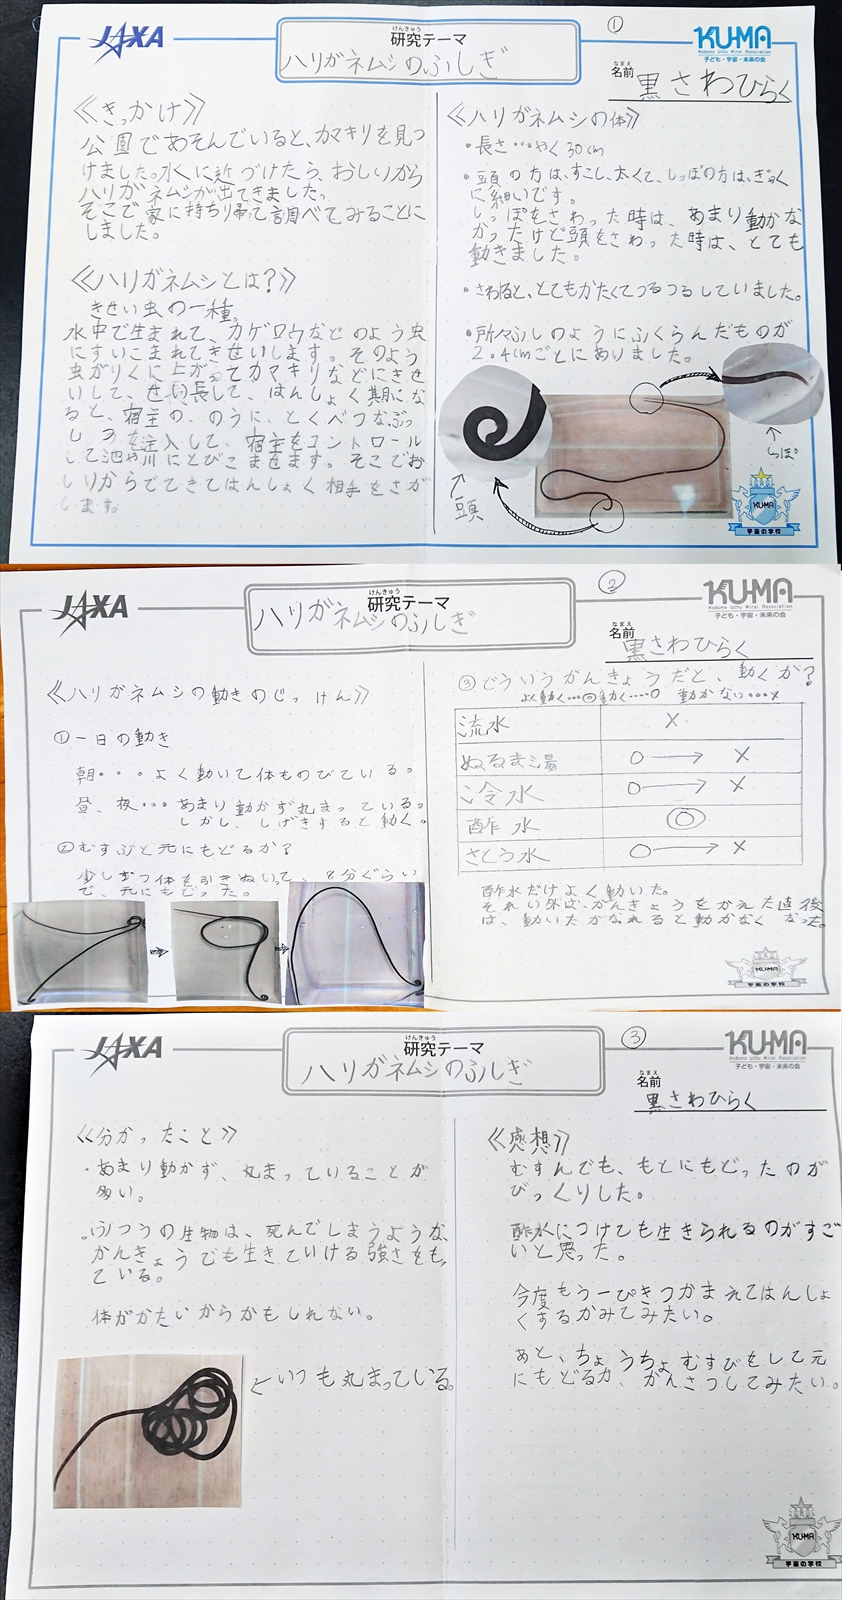 ①
JAXA
けんきゅう
研究テーマ
ハリガネムシのふしぎ
KU-MA
Kodomo Uchu Mirai Association
子ども・宇宙・未来の会
なまえ
名前 黒さわひらく
≪きっかけ≫
公園であそんでいると、カマキリを見つ
けました。水に近づけたら、おしりから
ハリガネムシが出てきました。
そこで家に持ち帰って調べてみることに
しました。
≪ハリガネムシとは?≫
きせい虫の一種。
水中で生まれて、カゲロウなどのよう虫
にすいこまれてきせいします。そのよう
虫がりくに上がってカマキリなどにきせ
いして、せい長して、はんしょく期にな
ると、宿主の、のうに、とくべつなぶっ
しつを注入して、宿主をコントロール
して池や川にとびこませます。そこでお
しりからでてきてはんしょく相手をさが
します。
≪ハリガネムシの体≫
・長さ…やく30cm
・頭の方は、すこし、太くて、しっぽの方は、ぎゃく
に細いです。
しっぽをさわった時は、あまり動かな
かったけど頭をさわった時は、とても
動きました。
・さわると、とてもかたくてつるつるしていました。
・所々ふしのようにふくらんだものが
2.4cmごとにありました。
頭
しっぽ
KUMA
宇宙の学校
②
JAXA
けんきゅう
研究テーマ
ハリガネムシのふしぎ
KU-MA
Kodomo Uchu Mirai Association
子ども・宇宙・未来の会
なまえ
名前 黒さわひらく
≪ハリガネムシの動きのじっけん≫
①一日の動き
朝・・・よく動いて体ものびている。
昼、夜…あまり動かず丸まっている。
しかし、しげきすると動く。
②むすぶと元にもどるか?
少しずつ体を引きぬいって、8分ぐらい
で、元にもどった。
③どういうかんきょうだと、動くか?
よく動く…◎動く……○ 動かない…×
流水 ×
ぬるま湯 ○→×
冷水 ○→×
酢水 ◎
さとう水 ○→×
酢水だけよく動いた。
それい外は、かんきょうをかえた直後
は、動いたがなれると動かなくなった。
KUMA
宇宙の学校
③
JAXA
けんきゅう
研究テーマ
ハリガネムシのふしぎ
KU-MA
Kodomo Uchu Mirai Association
子ども・宇宙・未来の会
なまえ
名前 黒さわひらく
≪分かったこと≫
・あまり動かず、丸まっていることが
多い。
・ふつうの生物は、死んでしまうような、
かんきょうでも生きていける強さをもっ
ている。
体がかたいからかもしれない。
←いつも丸まっている。
≪感想≫
むすんでも、もとにもどったのが
びっくりした。
酢水につけても生きられるのがすご
いと思った。
今度もう一ぴきつかまえてはんしょ
くするかみてみたい。
あと、ちょうちょむすびをして元
にもどるか、かんさつしてみたい。
KUMA
宇宙の学校